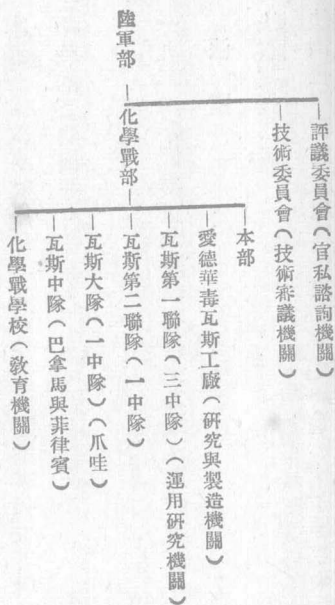 陸軍部
評議委員會（官私諮詢機關）
技術委員會（技術審議機關）
化學戰部
本部
愛德華毒瓦斯工廠（研究與製造機關）
瓦斯第一聯隊（三中隊）（運用研究機關）
瓦斯第二聯隊（一中隊）
瓦斯大隊（一中隊）（爪哇）
瓦斯中隊（巴拿馬與菲律賓）
化學戰學校（敎育機關）